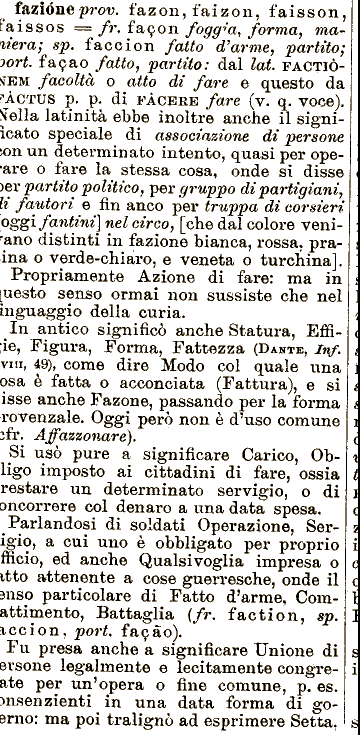 fazióne prov. fazon, faizon, faisson,
faissos = fr. façon foggia, forma, ma-
niera; sp. faccion fatto d'arme, partito;
port. façao fatto, partito: dal lat. FACTIÒ-
NEM facoltà o atto di fare e questo da
FÀCTUS p. p. di FÀCERE fare (v. q. voce).
Nella latinità ebbe inoltre anche il signi-
ficato speciale di associazione di persone
con un determinato intento, quasi per ope-
rare o fare la stessa cosa, onde si disse
per partito politico, per gruppo di partigiani,
di fautori e fin anco per truppa di corsieri
[oggi fantini] nel circo, [che dal colore veni-
vano distinti in fazione bianca, rossa, pra-
sina o verde-chiaro, e veneta o turchina].
Propriamente Azione di fare: ma in
questo senso ormai non sussiste che nel
linguaggio della curia.
In antico significò anche Statura, Effi-
gie, Figura, Forma, Fattezza (DANTE, Inf.
XVIII, 49), come dire Modo col quale una
cosa è fatta o acconciata (Fattura), e si
disse anche Fazone, passando per la forma
provenzale. Oggi però non è d'uso comune
(cfr. Affazzonare).
Si usò pure a significare Carico, Ob-
bligo imposto ai cittadini di fare, ossia
prestare un determinato servigio, o di
concorrere col denaro a una data spesa.
Parlandosi di soldati Operazione, Ser-
vigio, a cui uno è obbligato per proprio
ufficio, ed anche Qualsivoglia impresa o
fatto attenente a cose guerresche, onde il
senso particolare di Fatto d'arme, Com-
battimento, Battaglia (fr. faction, sp.
faccion, port. façāo).
Fu presa anche a significare Unione di
persone legalmente e lecitamente congre-
gate per un'opera o fine comune, p. es.
consenzienti in una data forma di go-
verno: ma poi tralignò ad esprimere Setta,